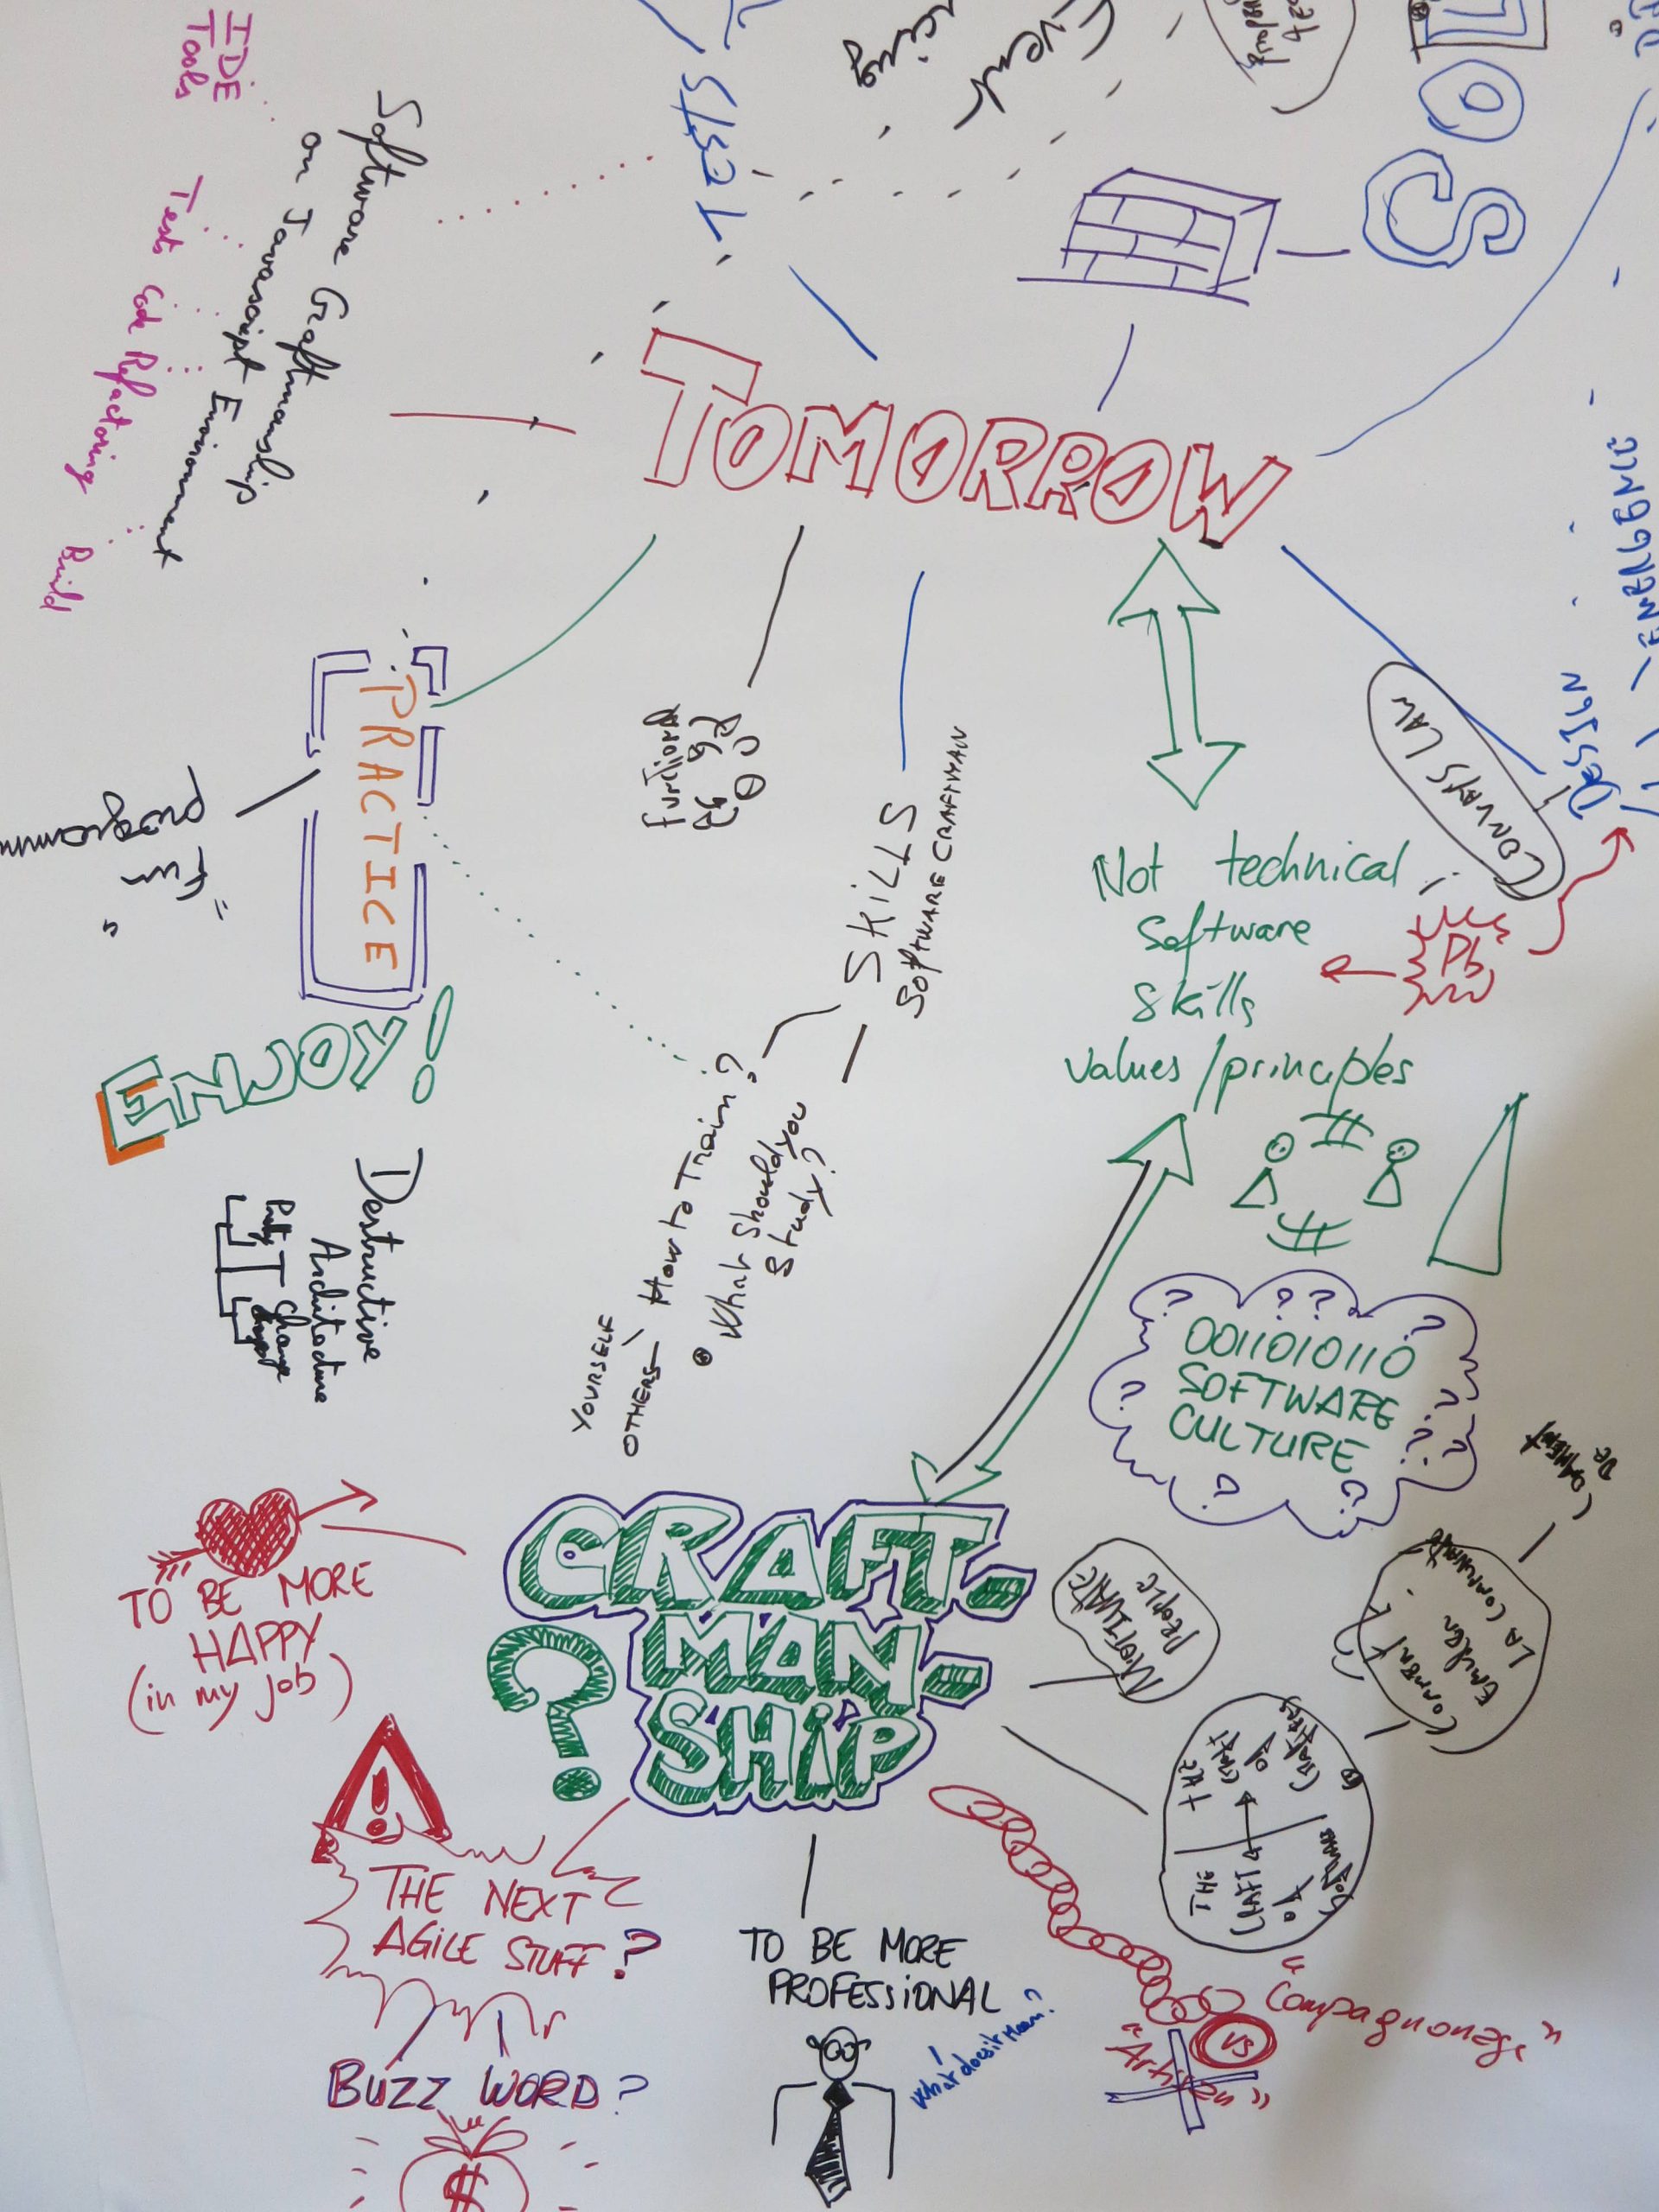 IDE
Tools
Tests Code Refactoring Build
Software Craftmanship
on Javascript Environment
TESTS
Event
SO
TOMORROW
EMERGENCE
DESIGN
CONWAYS LAW
Pb
PRACTICE
programm
"Fun"
ENJOY!
functional
SKILLS
SOFTWARE CRAFTMAN
How to Train?
YOURSELF
OTHERS
What should you
study?
Not technical
Software
Skills
Values/principles
Destructive
Architecture
change
? ? ? ?
0011010110
SOFTWARE
CULTURE
CRAFT-
MAN-
SHIP
?
TO BE MORE
HAPPY
(in my job)
!
THE NEXT
AGILE STUFF?
BUZZ WORD?
$
TO BE MORE
PROFESSIONAL
What does it mean?
MOTIVATE
PEOPLE
THE
CRAFT
of
Software
THE
Craft
of
COMMENT
LA COMMUNAUTÉ
COMMENT
"Compagnonage"
VS
"Artisan"